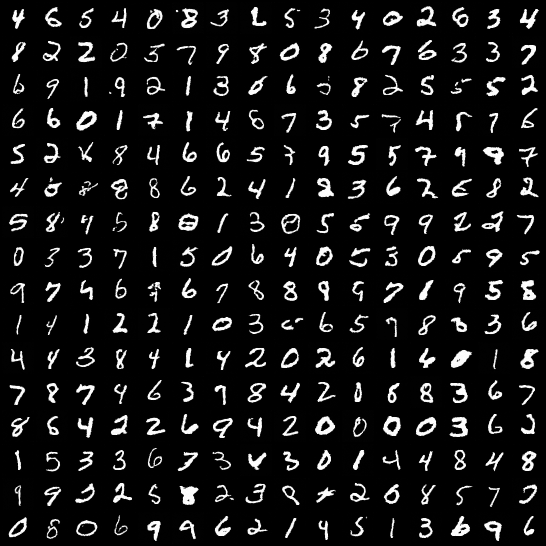 4 6 5 4 0 8 3 1 5 3 4 0 2 6 3 4
8 2 2 0 5 7 9 8 0 8 6 7 6 3 3 7
6 9 1 9 2 1 3 6 8 2 5 5 5 2
6 6 0 1 7 1 4 8 7 3 5 7 4 5 7 6
5 2 8 4 6 6 5 7 9 5 5 7 9 9 7
4 8 8 8 6 2 4 1 2 3 6 2 8 2
5 8 4 5 8 0 1 3 0 5 5 9 9 2 2 7
0 3 3 7 1 5 0 6 4 0 5 3 0 5 9 5
9 7 9 6 7 6 7 8 8 9 9 7 1 9 5 8
1 4 1 2 2 1 0 3 6 5 9 8 3 6
4 4 3 8 4 1 4 2 0 2 6 1 6 0 1 8
7 8 7 4 6 3 9 8 4 2 0 8 8 3 6 7
8 6 4 2 2 6 9 4 2 0 0 0 0 3 6 2
1 5 3 3 6 7 3 4 3 0 1 4 4 8 4 8
9 9 2 2 5 8 2 3 8 2 0 8 5 7 7
0 8 0 6 9 9 6 2 1 4 5 1 3 6 9 6